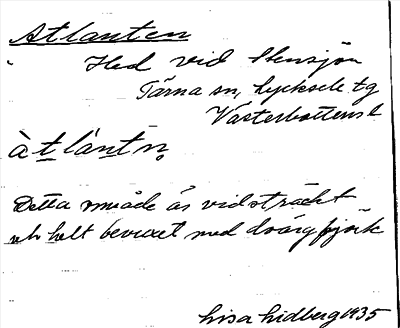 Atlanten
Hed vid Stensjön
Tärna sn, Lycksele tg
Västerbottens l
àt̲lánt̲n̥
Detta område är vidsträckt
och helt bevuxet med dvärgbjörk
Lisa Lidberg 1935